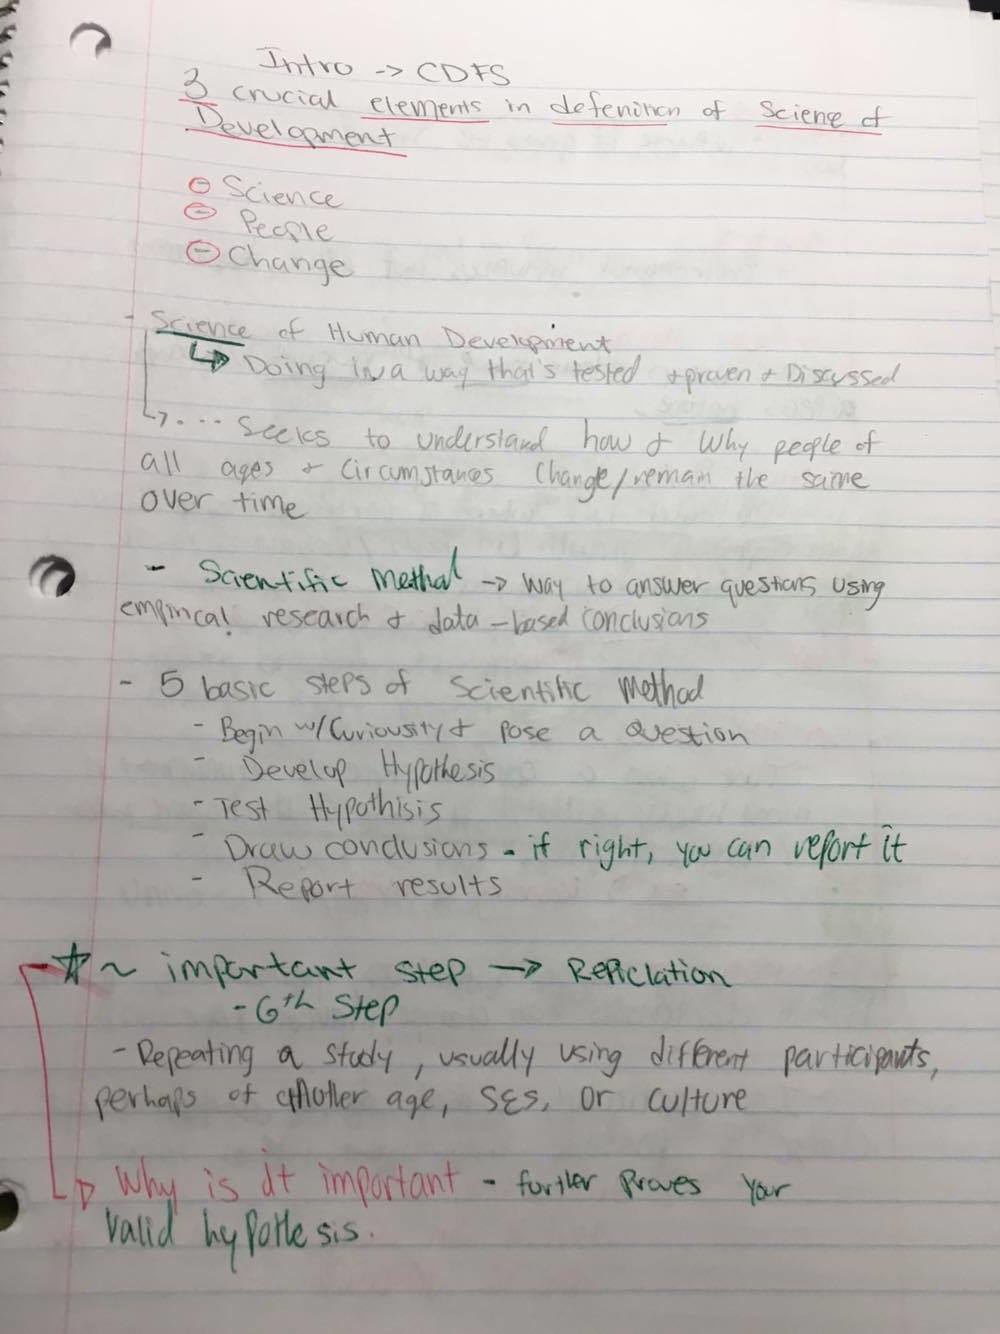 Intro -> CDFS
3 crucial elements in defenition of Science of
Development
Science
People
Change
- Science of Human Development
↳ Doing in a way that's tested + proven + Discussed
↳ .... Seeks to understand how & Why people of
all ages & Circumstances Change/remain the same
over time
- Scientific Method -> way to answer questions using
empirical research & data-based conclusions
- 5 basic steps of Scientific Method
- Begin w/ Curiousity & pose a Question
- Develop Hypothesis
- Test Hypothisis
- Draw conclusions - if right, you can report it
- Report results
☆ ~ important step -> Repiclation
- 6th Step
- Repeating a study, usually using different participants,
perhaps of another age, SES, or culture
↳ Why is it important - further Proves your
Valid hypothesis.